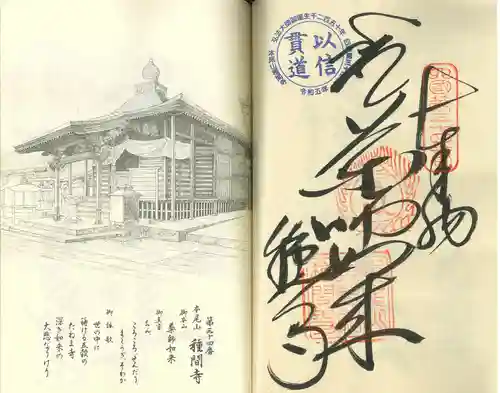 弘法大師御誕生千二百五十年
以信
貫道
令和五年
奉拝
薬師如来
種間寺
第三十四番
本尾山 種間寺
御本尊 薬師如来
御真言
おん
ころころ せんだり
まとうぎ そわか
御詠歌
世の中に
蒔ける五穀の
たねま寺
深き如来の
大悲なりけり